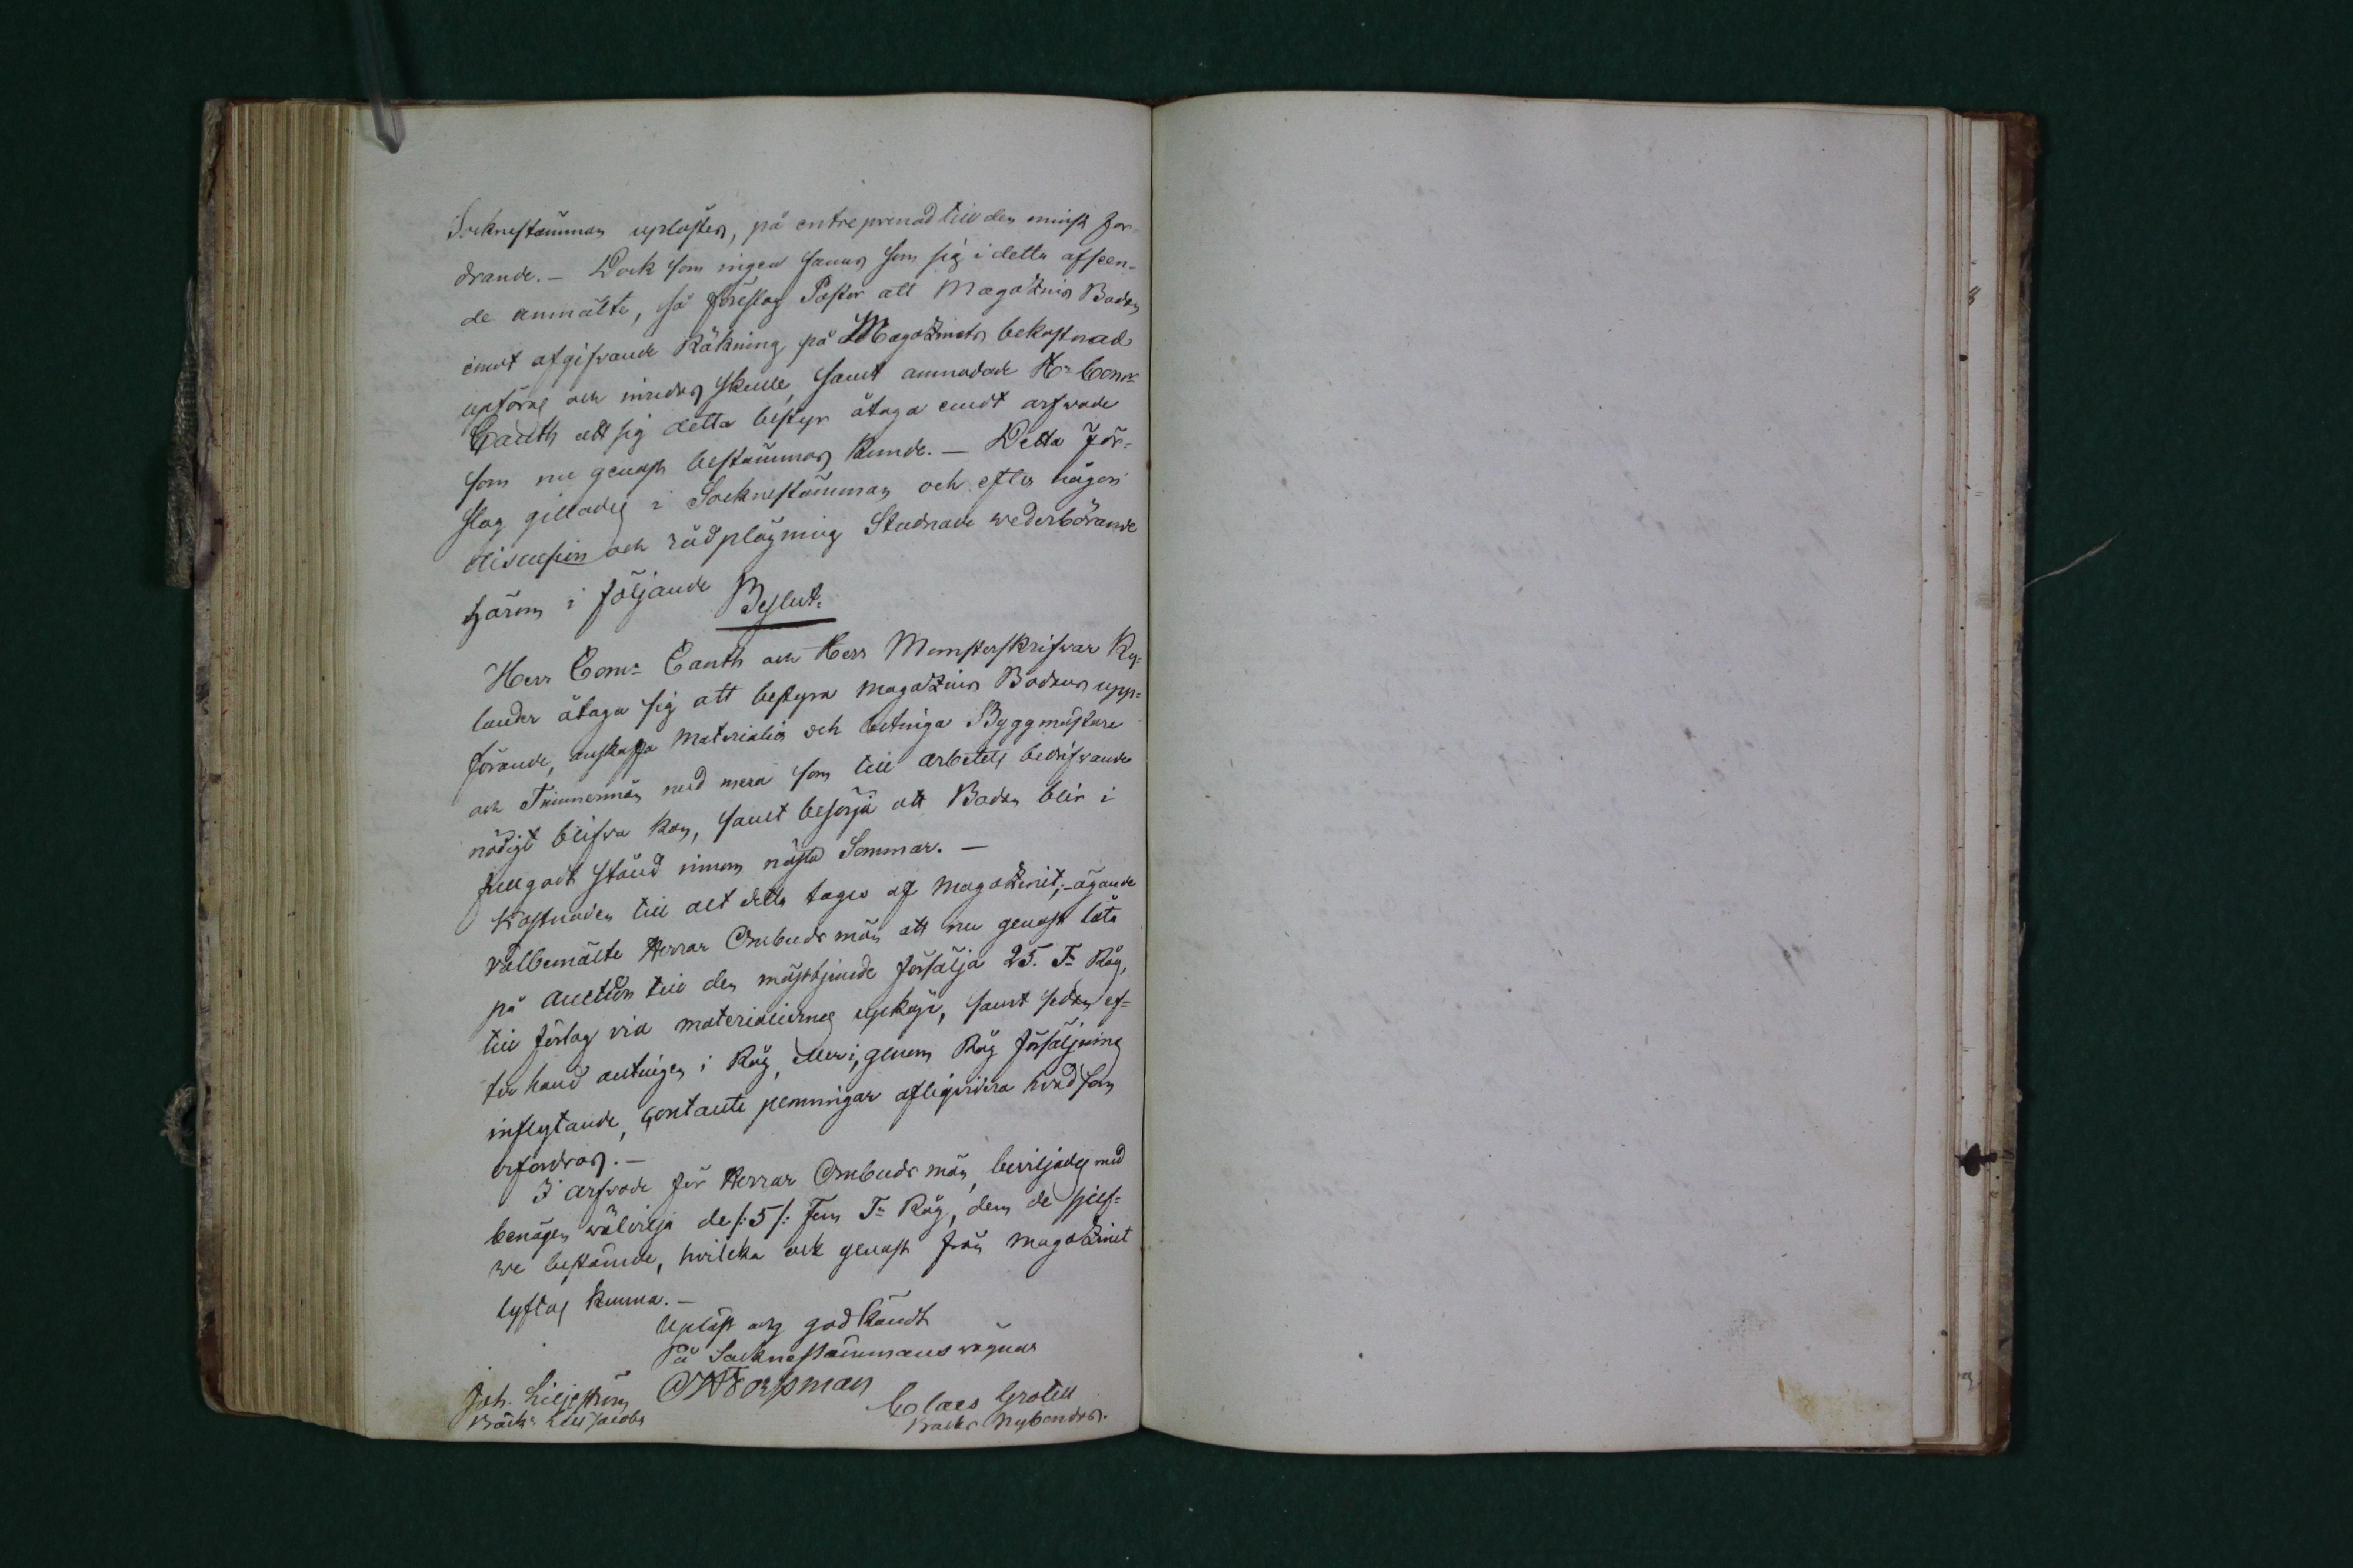 Socknestämman uplåsten, på entreprenad till den minst for-
drande. — Dock som ingen fanns som sig i detta afseen-
de anmälte, så föreslog Pastor att Magazins Boden
emot afgifvande Räkning på Magazinets bekostnad
upföras och inredas skulle, samt anmodade Hr Comr
Canth att sig detta bestyr åtaga emot arfwode
som nu genast bestämmas kunde. — Detta för-
slag gillades i Socknestämman och efter någon
discusion och rådplägning Stadnade wederbörande
härom i följande Beslut:
Herr Comr Canth och Herr Mönsterskrifvar Ky-
lander åtaga sig att bestyra Magazins Bodens upp-
förande, anskaffa Materialier och betinga Byggmästare
och Timmermän med mera som till arbetets bedrifvande
nödigt blifva kan, samt besörja att Boden blir i
fullgodt stånd innom nästa Sommar. —
Kostnaden till alt detta tages af Magazinet; ägande
välbemälte Herrar Ombudsmän att nu genast låta
på Auction till den mästbjudande försälja 25. Tr Råg,
till förlag vid materialiernes upköp, samt sedan ef-
ter hand antingen i Råg, eller i, genom Råg försäljning
inflytande, contante penningar afliqvidera hvad som
erfordras. —
I arfvode för Herrar Ombudsmän, beviljades med
benägen wälvilja de /: 5 /: Fem Tr Råg, dem de sjelf-
we bestämde, hvilcka ock genast från Magazinet
lyftas kunna. —
Upläst och godkändt
På Socknestämmans wägnar
Joh. Liljeström
Claes Grotell
Backs Nybondas.